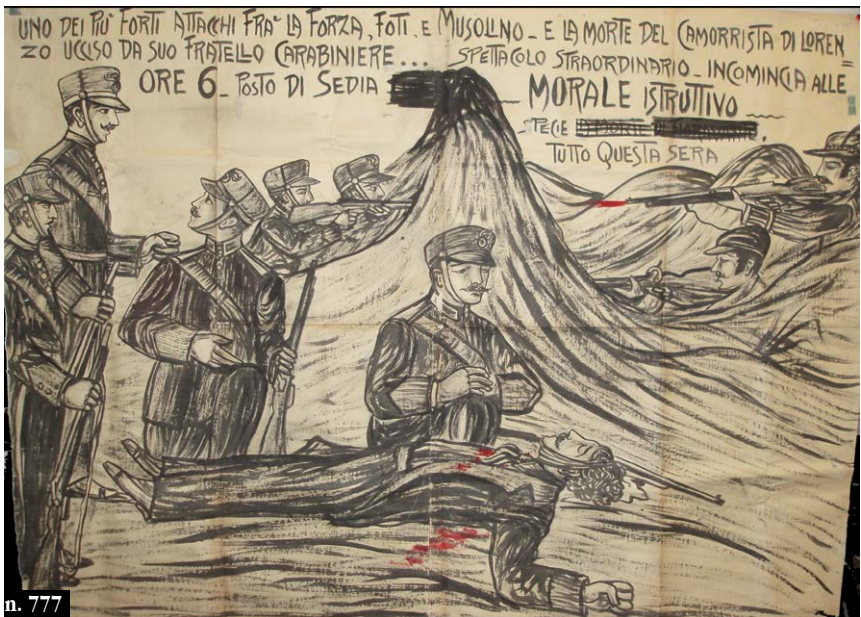 UNO DEI PIÙ FORTI ATTACCHI FRA LA FORZA, FOTI, E MUSOLINO_ E LA MORTE DEL CAMORRISTA DI LOREN=
ZO UCCISO DA SUO FRATELLO CARABINIERE... SPETTACOLO STRAORDINARIO_ INCOMINCIA ALLE
ORE 6_ POSTO DI SEDIA
MORALE ISTRUTTIVO
SPECIE
TUTTO QUESTA SERA
n. 777